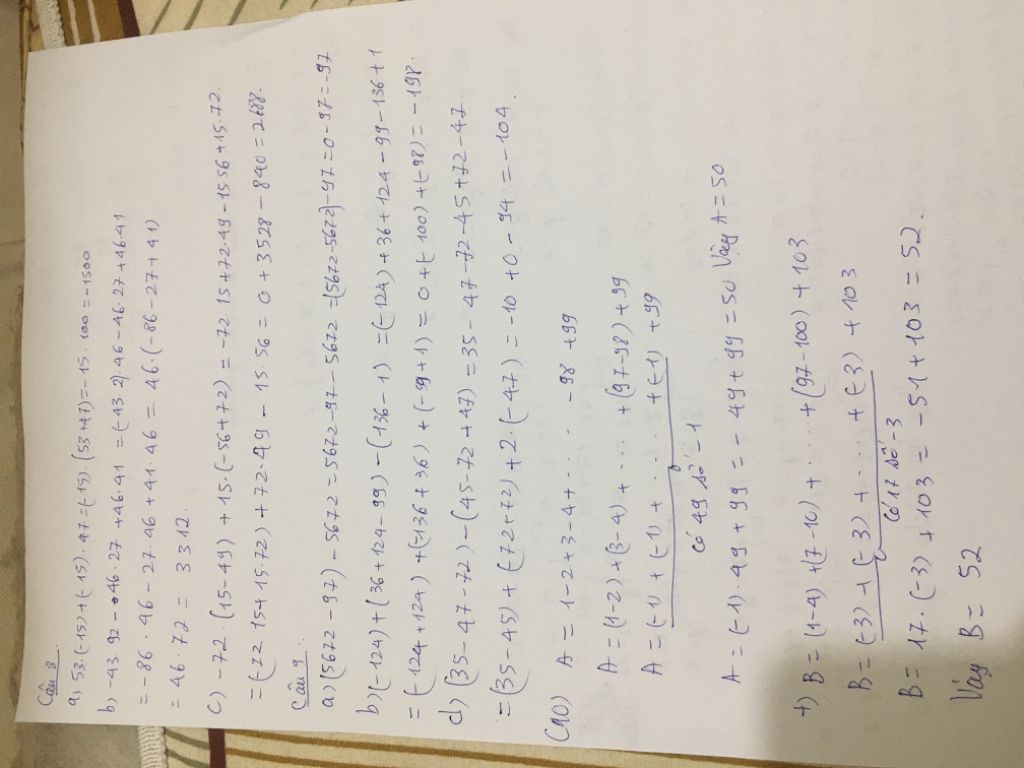 Câu 8
a) 53.(-15)+(-15).47=(-15).(53+47)=-15.100=-1500
b) -43.92-46.27+46.41 =(-43.2).46-46.27+46.41
= -86.46-27.46+41.46 = 46(-86-27+41)
= 46.72 = 3312.
c) -72(15-49)+15.(-56+72) = -72.15+72.49-15.56+15.72.
=(-72.15+15.72)+72.49-15.56 = 0+3528-840=2688.
Câu 9.
a)(5672-97)-5672=5672-97-5672 =(5672-5672)-97=0-97=-97
b)(-124)+(36+124-99)-(136-1) =(-124)+36+124-99-136+1
=(-124+124)+(-136+36)+(-99+1)= 0+(-100)+(-98)=-198.
d)(35-47-72)-(45-72+47)=35-47-72-45+72-47
=(35-45)+(-72+72)+2.(-47)=-10+0-94=-104.
C90) A = 1-2+3-4+.... -98 +99
A = (1-2)+(3-4)+....+(97-98)+99
A = (-1)+(-1)+....+(-1)+99
có 49 số -1
A=(-1).49+99 = -49+99=50 Vậy A=50
+) B=(1-4)+(7-10)+....+(97-100)+103
B=(-3)+(-3)+....+(-3)+103
Có 17 số -3
B= 17.(-3)+103 = -51+103 = 52.
Vậy B= 52